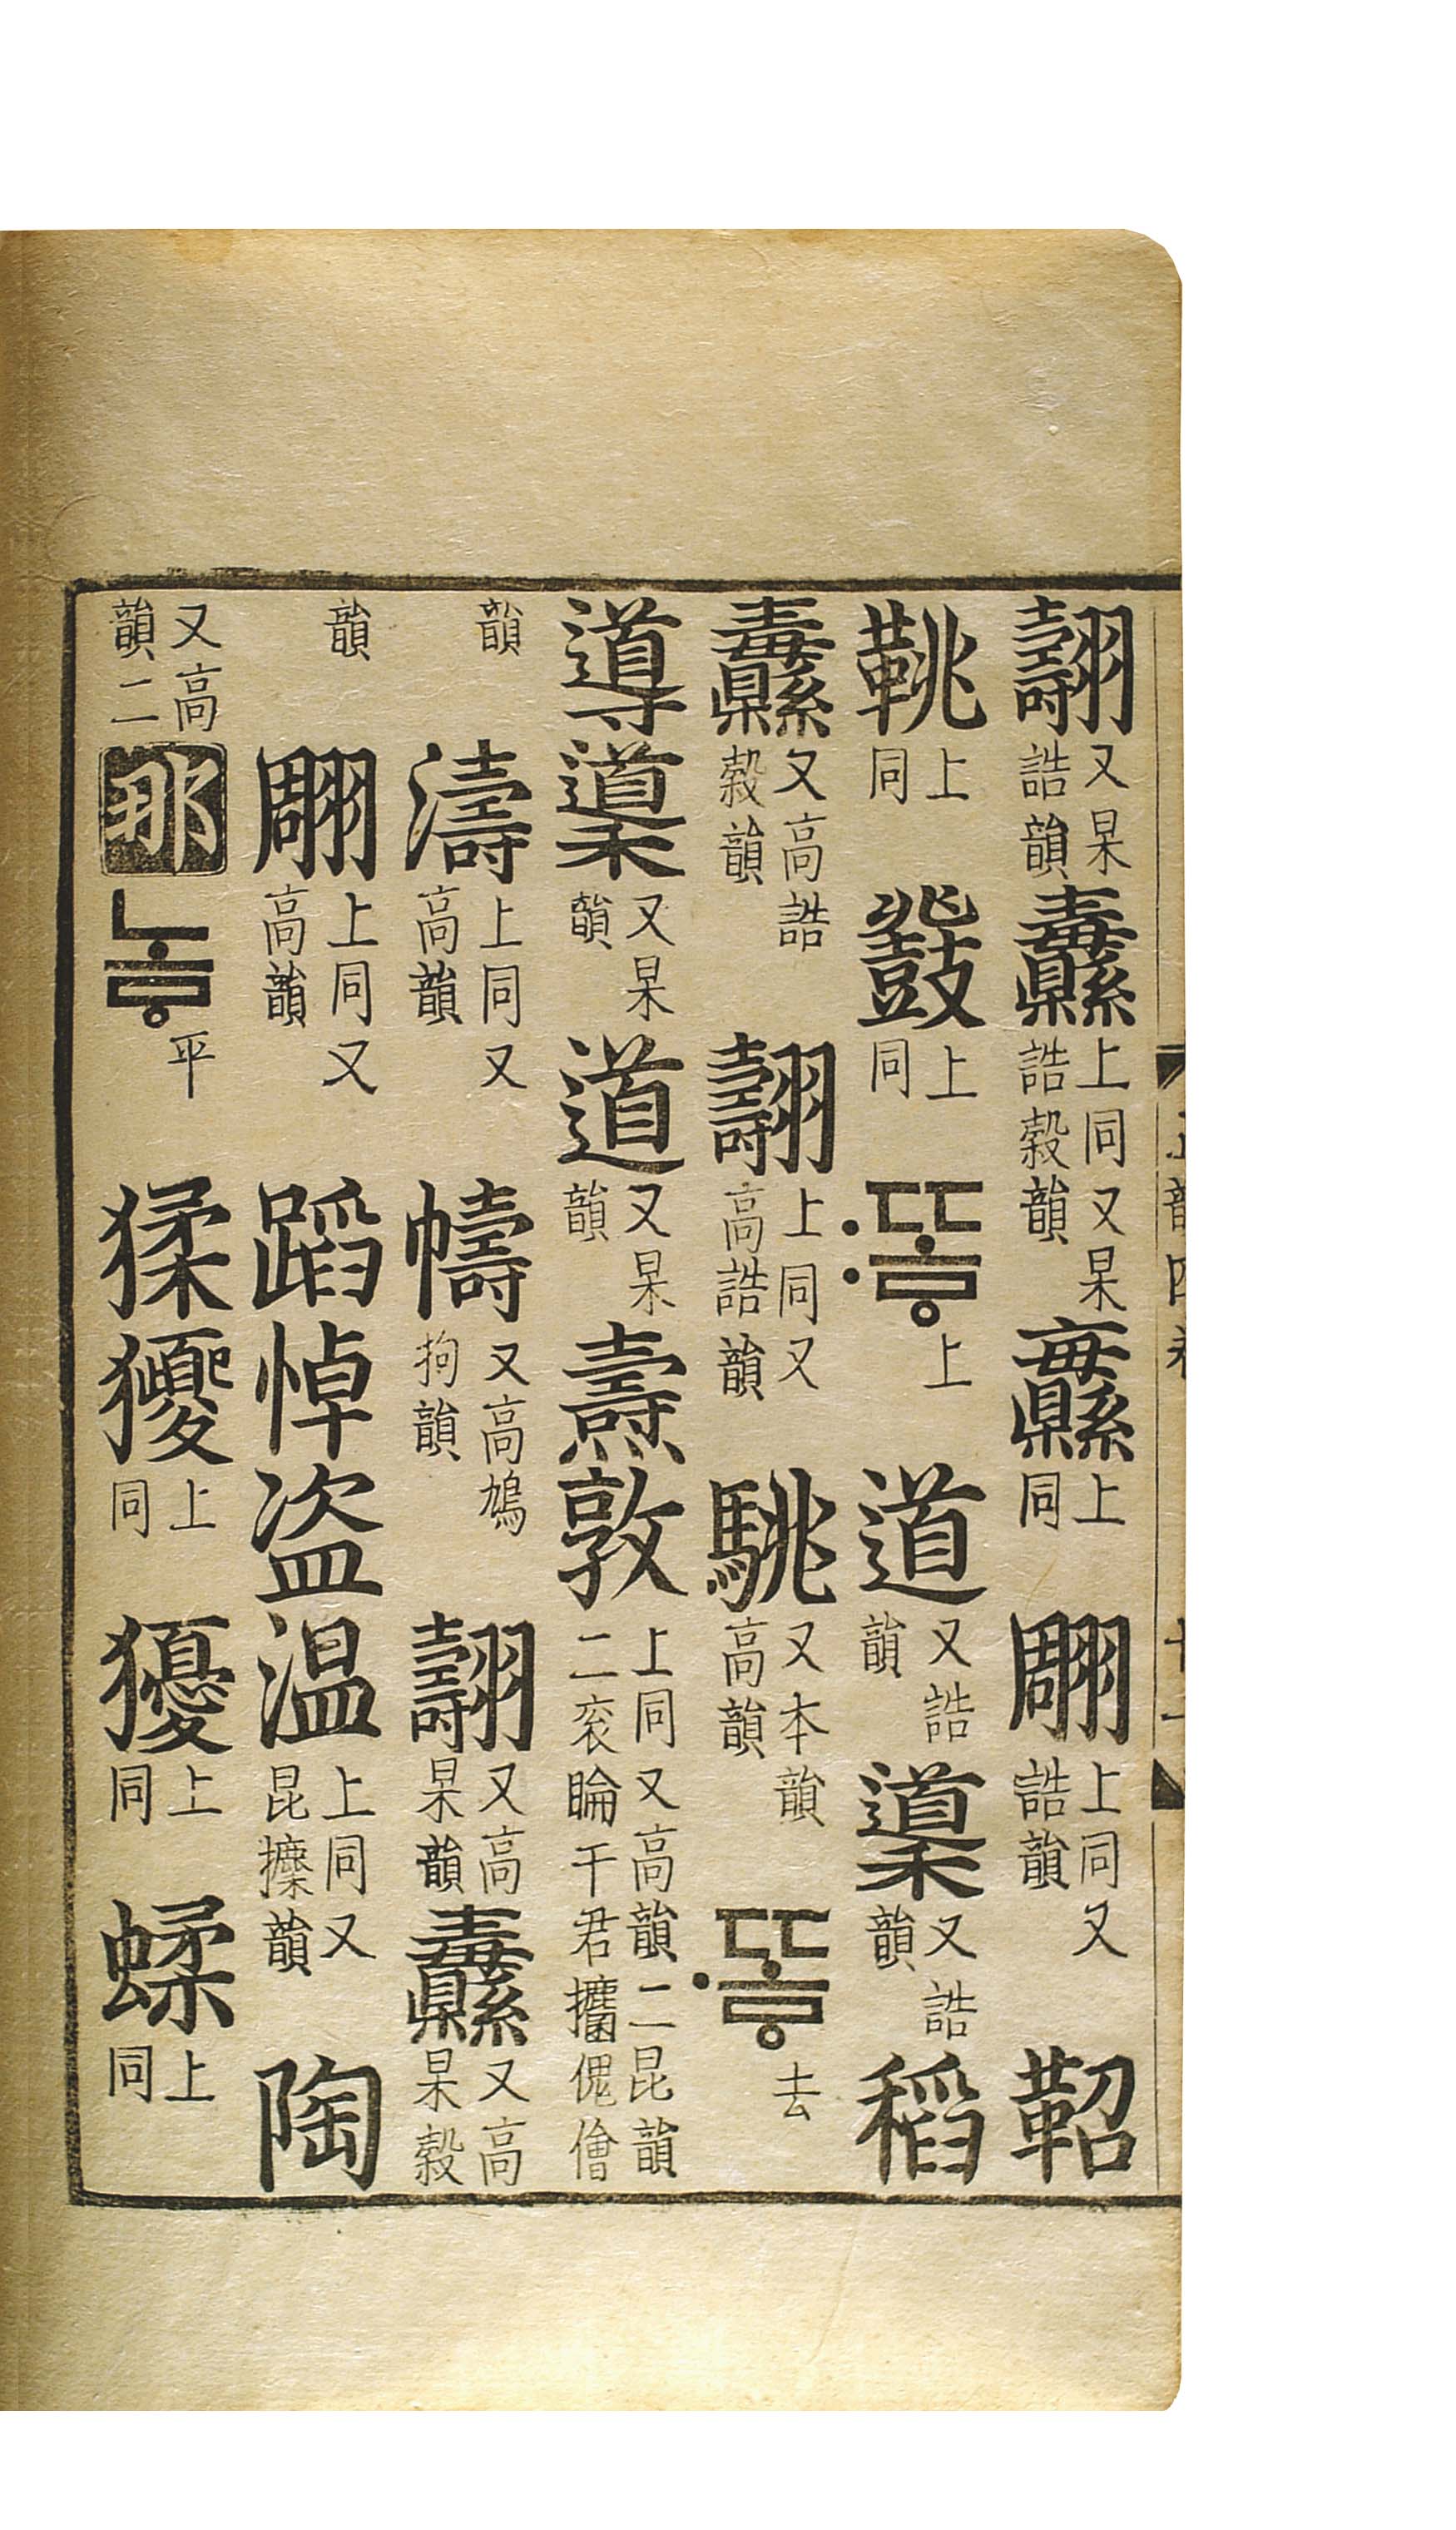 翿又杲誥韻纛上同又杲誥穀韻纛上同翢上同又誥韻鞀
鞉上同鼗上同똫〯上道又誥韻䆃又誥韻稻
纛又高誥穀韻翿上同又高誥韻駣又本韻高韻똫〮去
導䆃又杲韻道又杲韻燾敦上同又高韻二昆韻二袞睔干君攟傀儈
韻濤上同又高韻幬又高鳩拘韻翿又高杲韻纛又高杲穀
韻翢上同又高韻蹈悼盜温上同又昆韻陶
又高韻二那노ᇢ平猱獶上同獶上同蝚上同